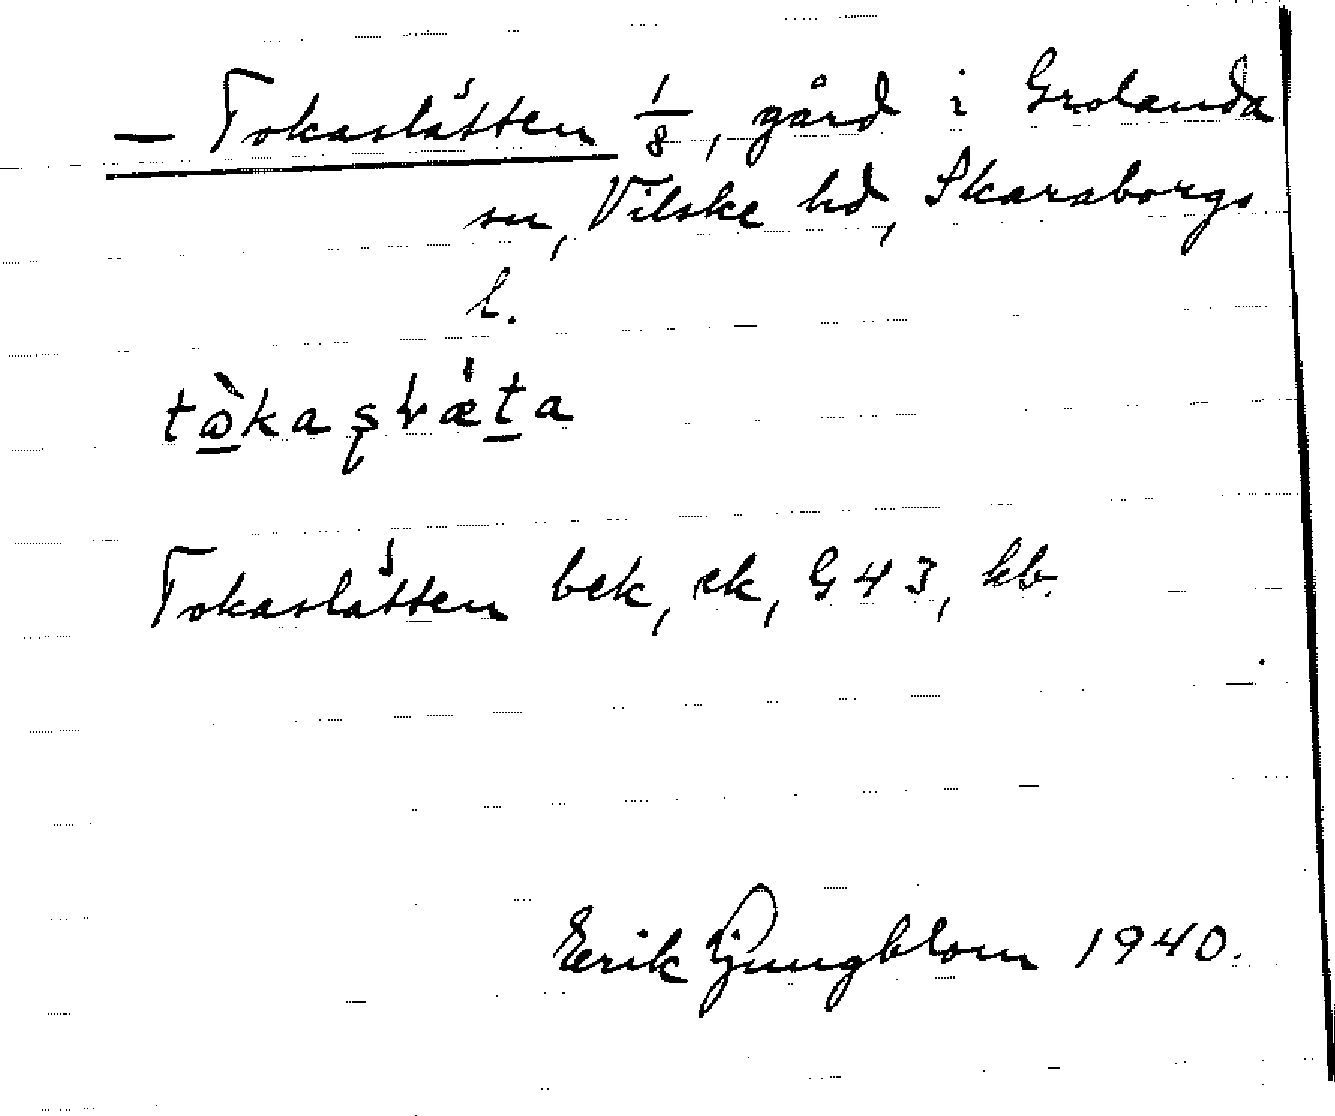 — Tokaslätten 1/8, gård i Grolanda
sn, Vilske hd, Skaraborgs
l.
Tokaslätten bek, ek, G 43, kb.
Erik Ljungblom 1940.